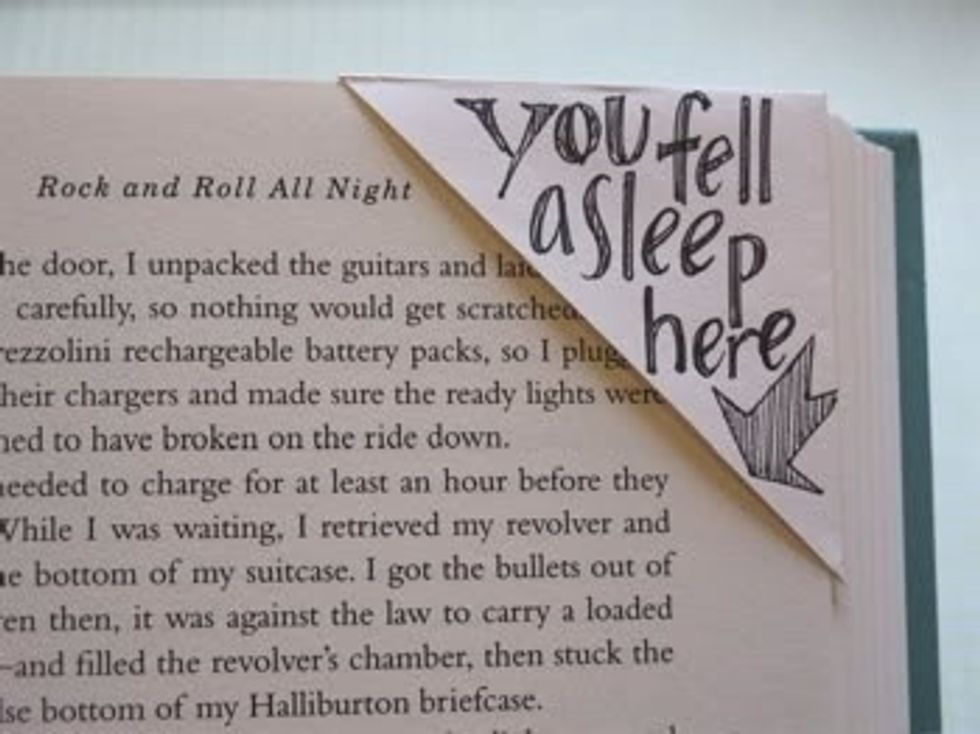 you fell
asleep
here
Rock and Roll All Night
he door, I unpacked the guitars and
carefully, so nothing would get scratched
rezzolini rechargeable battery packs, so I plug
heir chargers and made sure the ready lights were
ned to have broken on the ride down.
needed to charge for at least an hour before they
While I was waiting, I retrieved my revolver and
e bottom of my suitcase. I got the bullets out of
en then, it was against the law to carry a loaded
—and filled the revolver's chamber, then stuck the
lse bottom of my Halliburton briefcase.